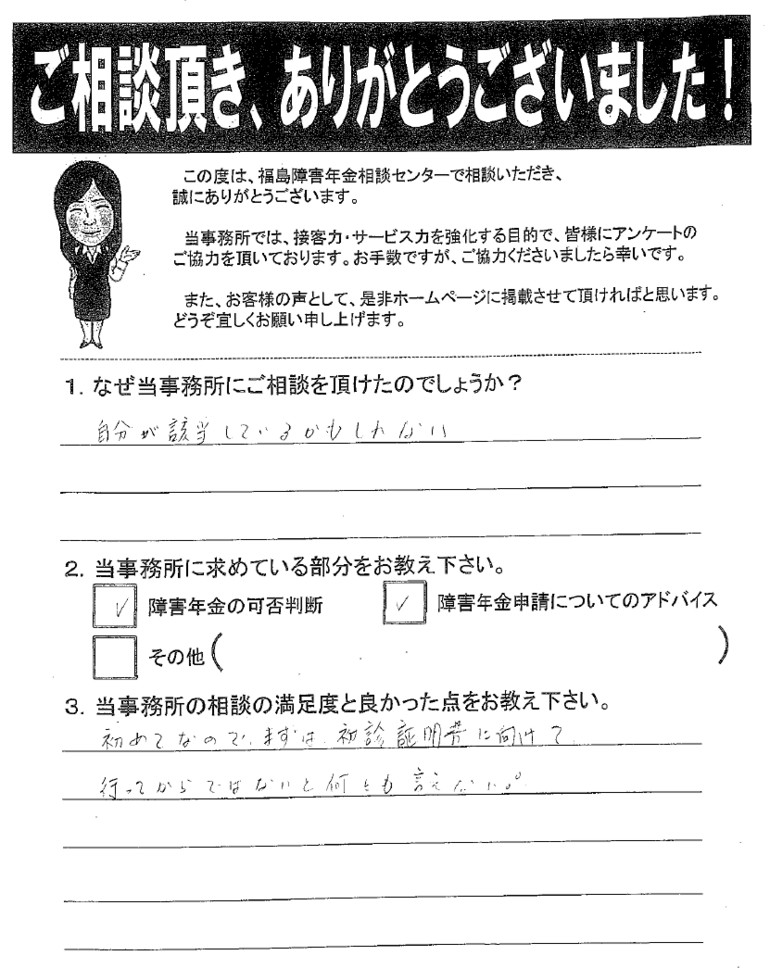 ご相談頂き、ありがとうございました！
この度は、福島障害年金相談センターで相談いただき、
誠にありがとうございます。
当事務所では、接客力・サービス力を強化する目的で、皆様にアンケートの
ご協力を頂いております。お手数ですが、ご協力くださいましたら幸いです。
また、お客様の声として、是非ホームページに掲載させて頂ければと思います。
どうぞ宜しくお願い申し上げます。
1. なぜ当事務所にご相談を頂けたのでしょうか？
自分が該当しているかもしれない
2. 当事務所に求めている部分をお教え下さい。
✓ 障害年金の可否判断 ✓ 障害年金申請についてのアドバイス
その他（ ）
3. 当事務所の相談の満足度と良かった点をお教え下さい。
初めてなので、まずは、初診証明書に向けて
行ってからではないと何とも言えない。